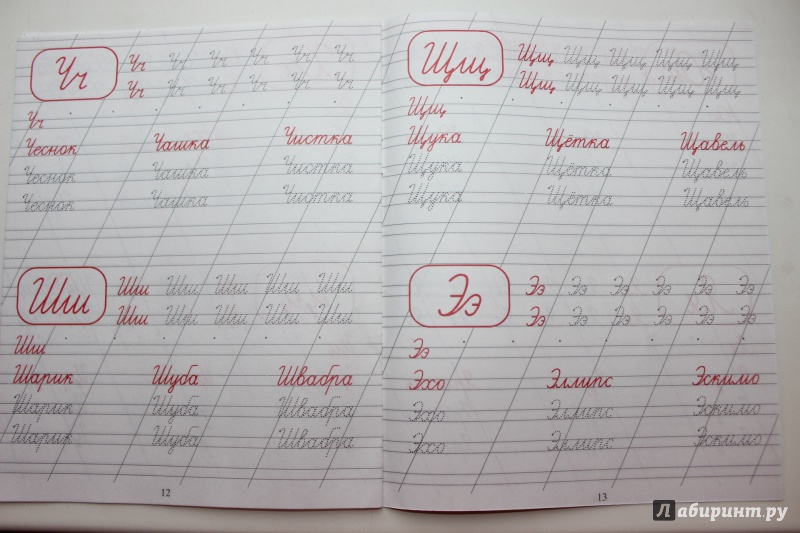 Чч Чч Чч Чч Чч Чч Чч
Чч Чч Чч Чч Чч Чч
Чч
Чеснок Чашка Чистка
Чеснок Чашка Чистка
Чеснок Чашка Чистка
Шш Шш Шш Шш Шш Шш
Шш Шш Шш Шш Шш
Шш
Шарик Шуба Швабра
Шарик Шуба Швабра
Шарик Шуба Швабра
12
Щщ Щщ Щщ Щщ Щщ Щщ
Щщ Щщ Щщ Щщ Щщ
Щщ
Щука Щётка Щавель
Щука Щётка Щавель
Щука Щётка Щавель
Ээ Ээ Ээ Ээ Ээ Ээ Ээ
Ээ Ээ Ээ Ээ Ээ Ээ
Ээ
Эхо Эллипс Эскимо
Эхо Эллипс Эскимо
Эхо Эллипс Эскимо
13
Лабиринт.ру